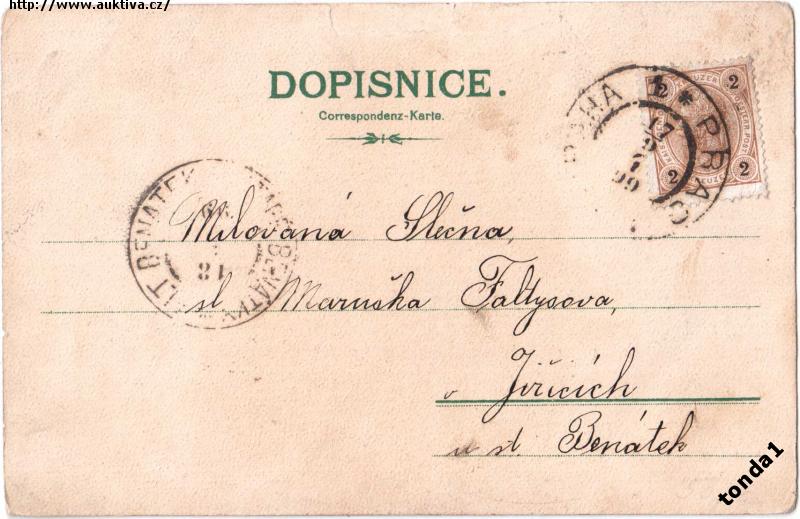 http://www.auktiva.cz/
DOPISNICE.
Correspondenz-Karte.
2 2
2 2
PRAHA * PRAG
17
99
ALT BENATEK
BENÁTKY
18
Milovaná Slečna,
sl Maruška Faltysova,
v Jiřicích
u st. Benátek
tonda1